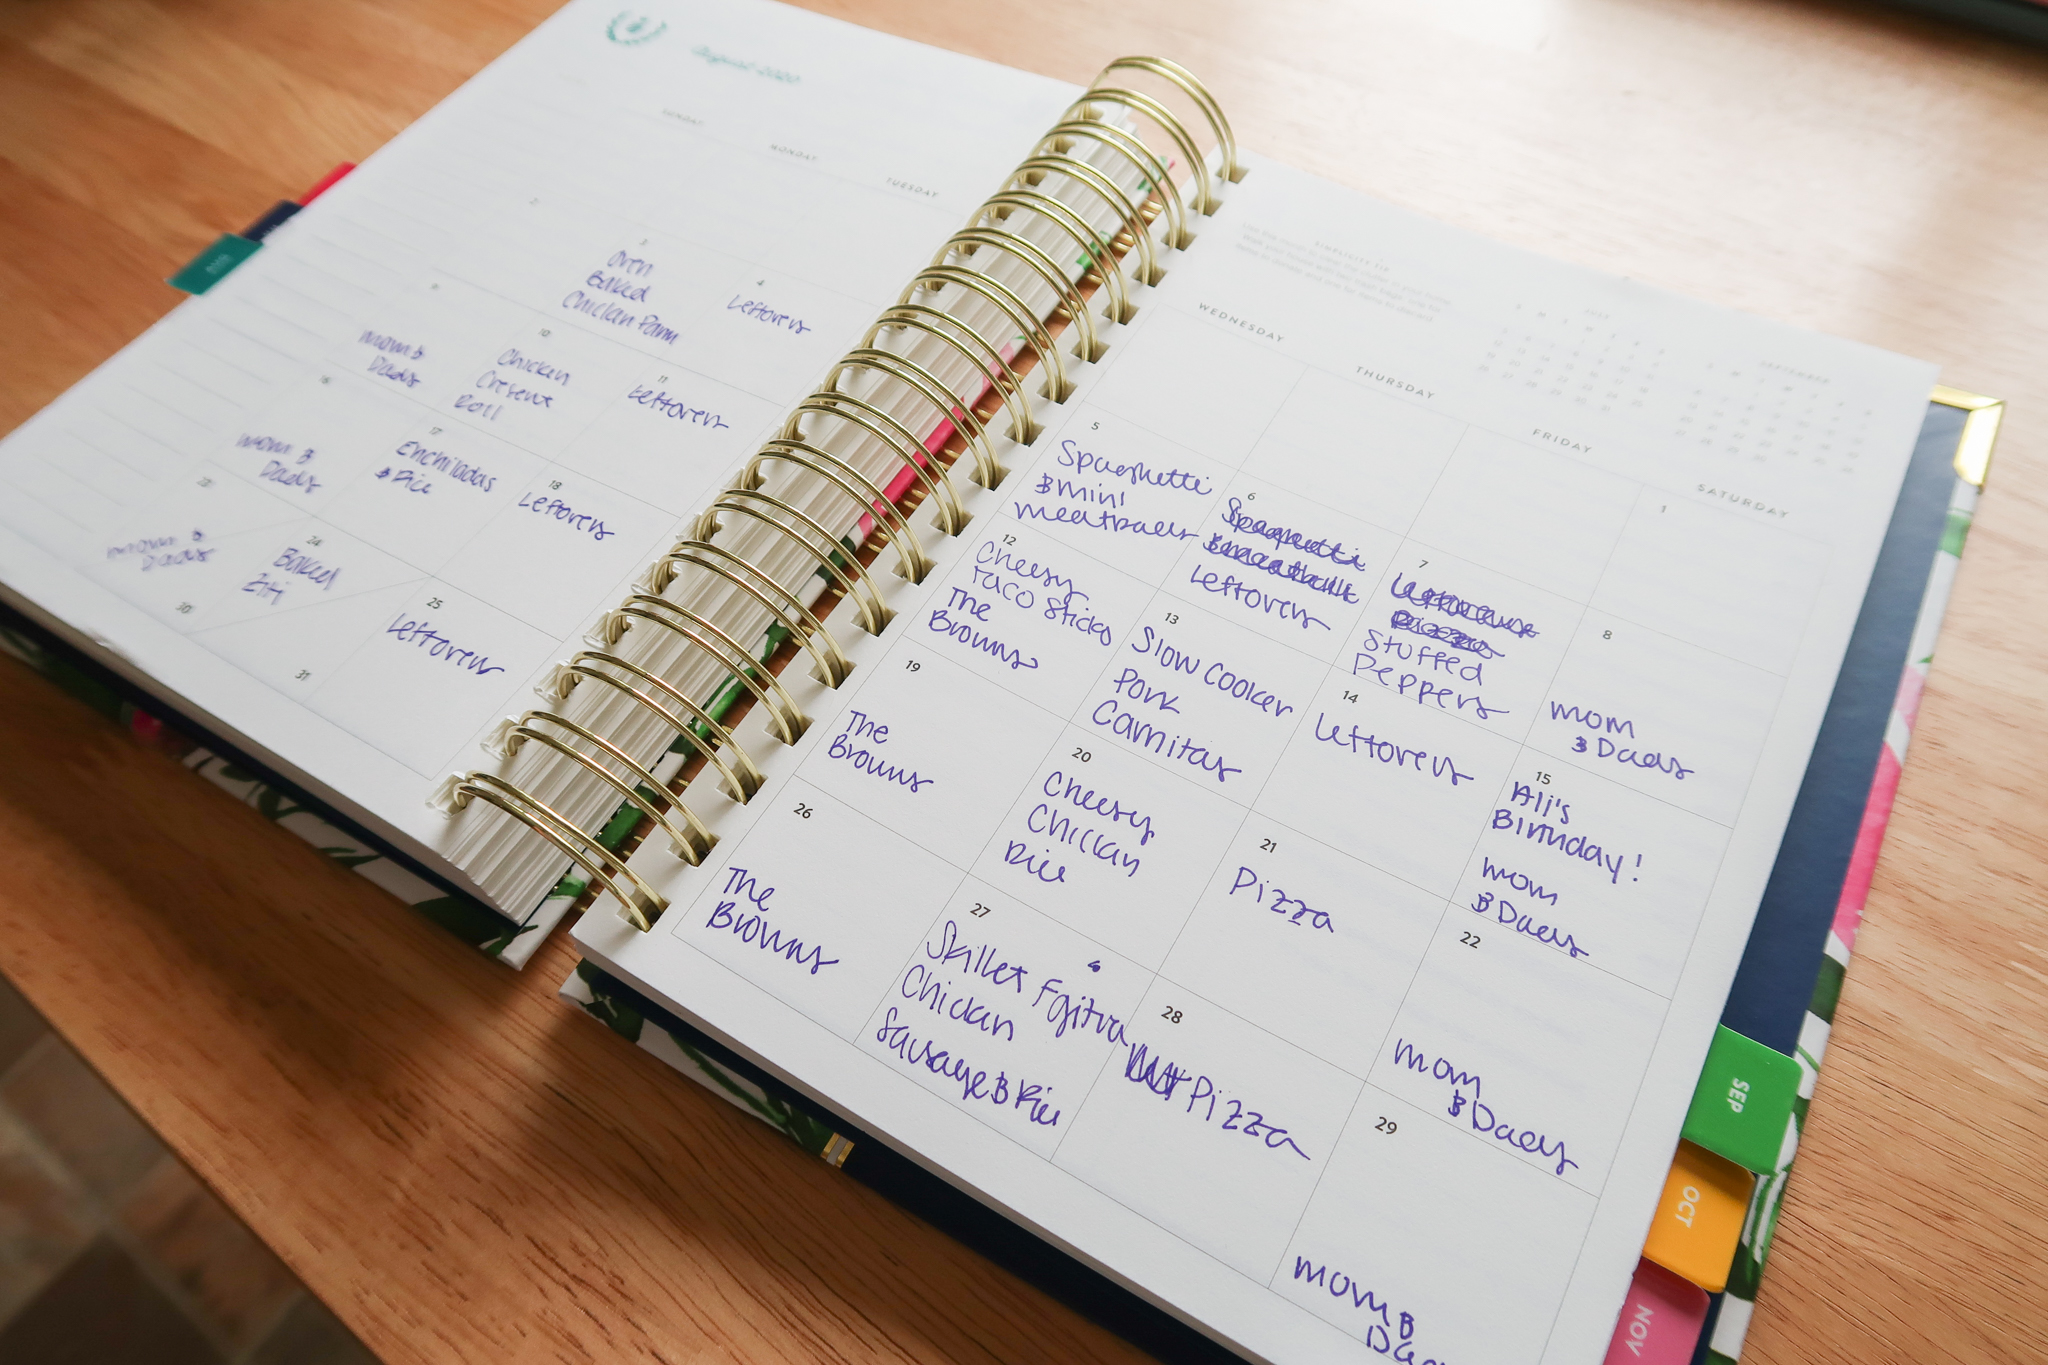 August 2020
SUNDAY
MONDAY
TUESDAY
2
3
oven
Baked
Chicken Parm
4
Leftovers
9
mom &
Dads
10
Chicken
Cresent
Roll
11
Leftovers
16
mom &
Dads
17
Enchiladas
& Rice
18
Leftovers
23
mom &
Dads
24
Baked
Ziti
25
Leftovers
30
31
SIMPLICITY TIP
JULY
SEPTEMBER
WEDNESDAY
THURSDAY
FRIDAY
SATURDAY
1
5
Spaghetti
& mini
meatballs
6
Spaghetti
& meatballs
Leftovers
7
Leftovers
Pizza
Stuffed
Peppers
8
mom
& Dads
12
Cheesy
Taco Sticks
The
Browns
13
Slow Cooker
Pork
Carnitas
14
Leftovers
15
Ali's
Birthday!
mom
& Dads
19
The
Browns
20
Cheesy
Chicken
Rice
21
Pizza
22
mom
& Dads
26
The
Browns
27
Skillet Fajita
Chicken
Sausage & Rice
28
Pizza
29
mom &
SEP
OCT
NOV